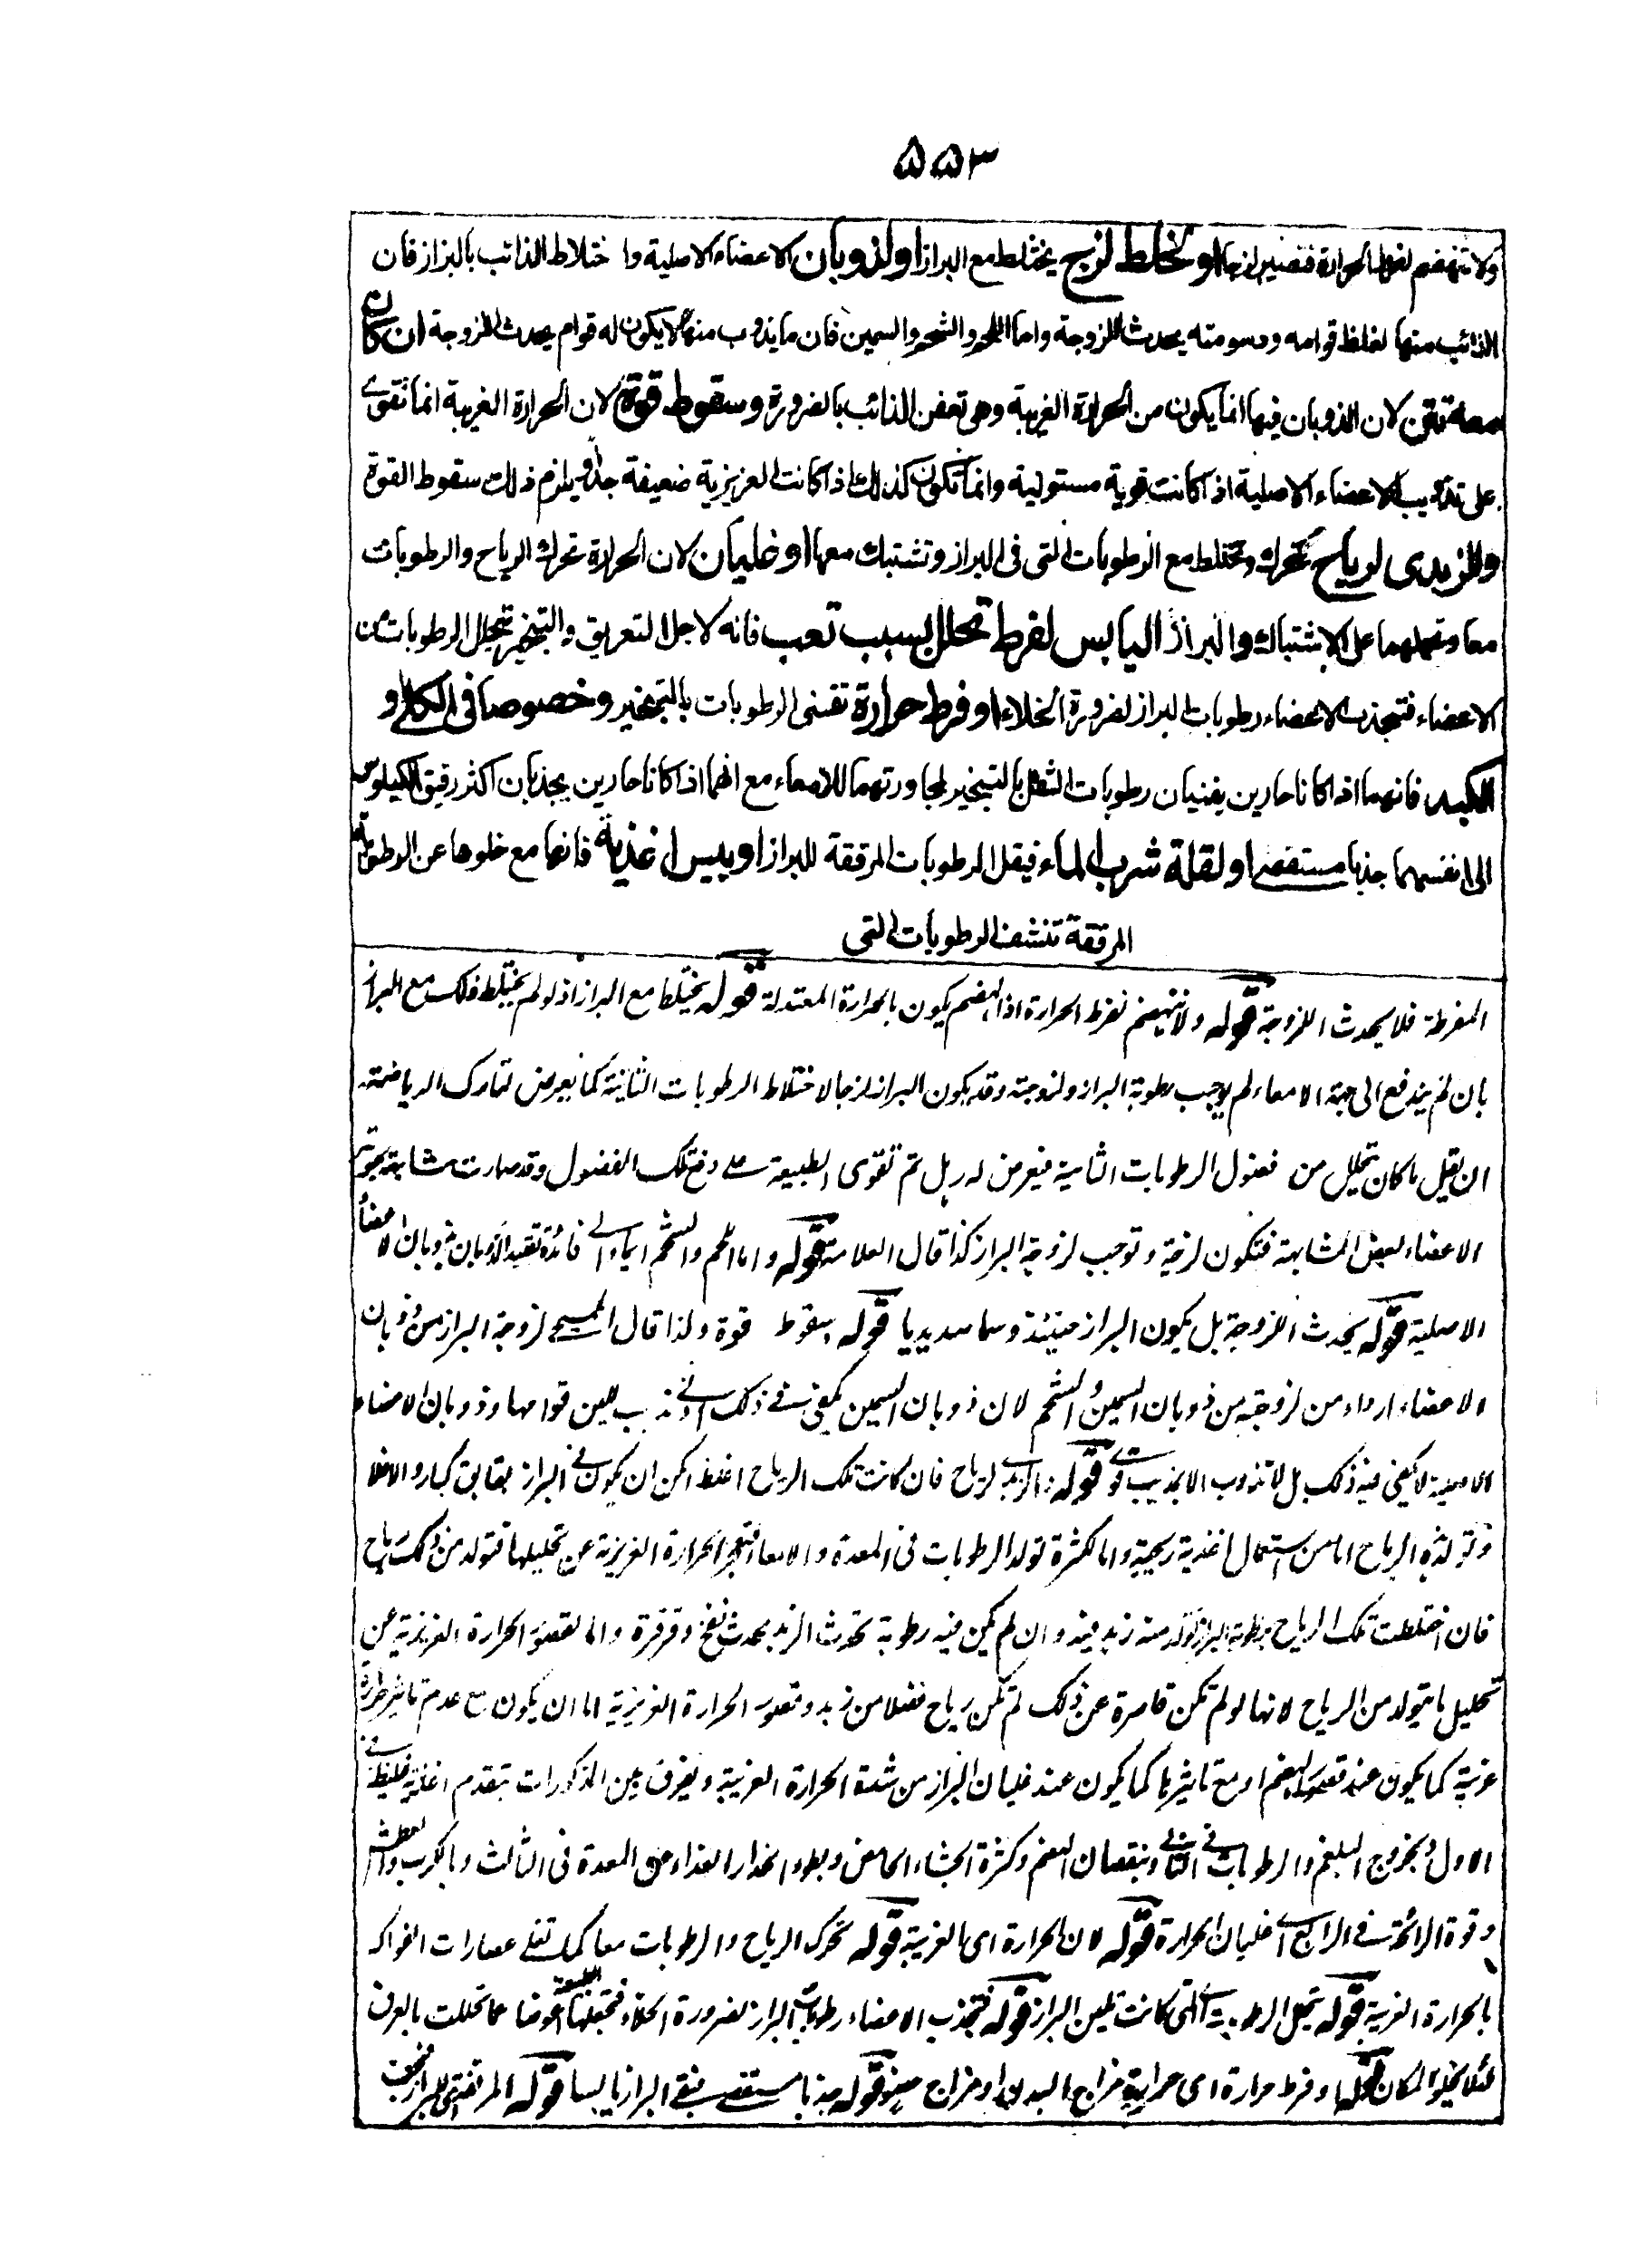 ۵۵۳
ولا تنهضم لفرط الحرارة فتصير لزجا او لخلط لزج يختلط مع البراز او لذوبان الاعضاء الاصلية واختلاط الذائب بالبراز فان
الذائب منها لغلظ قوامه ودسومته يحدث اللزوجة واما اللحم والشحم والسمين فان ما يذوب منها لا يكون له قوام يحدث اللزوجة ان كان
معه نتن لان الذوبان فيها انما يكون من الحرارة الغريبة وهى تعفن الذائب بالضرورة وسقوط قوة لان الحرارة الغريبة انما تقوى
على تذويب الاعضاء الاصلية اذا كانت قوية مستولية وانما تكون كذلك اذا كانت الغريزية ضعيفة جدا ويلزم ذلك سقوط القوة
والزبدى لرياح تتحرك وتختلط مع الرطوبات التى فى البراز وتشتبك معها او غليان لان الحرارة تحرك الرياح والرطوبات
معا وتحملهما على الاشتباك والبراز اليابس لفرط تحلل بسبب تعب فانه لاجل التعريق والتبخير تتحلل الرطوبات من
الاعضاء فتجذب الاعضاء رطوبات البراز لضرورة الخلاء او فرط حرارة تفنى الرطوبات بالتبخير وخصوصا فى الكلى و
الكبد فانهما اذا كانا حارين يفنيان رطوبات الثفل بالتبخير لمجاورتهما للامعاء مع انهما اذا كانا حارين يجذبان اكثر رقيق الكيلوس
الى انفسهما جذبا مستقصى او لقلة شرب الماء فيقل الرطوبات المرققة للبراز او يبس اغذية فانها مع خلوها عن الرطوبات
المرققة تنشف الرطوبات التى
المفرطة فلا يحدث اللزوجة قوله ولا تنهضم لفرط الحرارة اذ الهضم يكون بالحرارة المعتدلة قوله يختلط مع البراز اذ لو لم يختلط ذلك مع البراز
بان لم يندفع الى جهة الامعاء لم يوجب رطوبة البراز ولزوجته وقد يكون البراز لزجا لاختلاط الرطوبات الثانية كما يعرض لتارك الرياضة
ان يقل ما كان يتحلل من فضول الرطوبات الثانية فيعرض له ربل ثم تقوى الطبيعة على دفع تلك الفضول وقد صارت مشابهة بجوهر
الاعضاء بعض المشابهة فتكون لزجة وتوجب لزوجة البراز كذا قال العلامة قوله واما اللحم والشحم ايماء الى فائدة تقييد الذوبان بذوبان الاعضاء
الاصلية قوله يحدث اللزوجة بل يكون البراز حينئذ دسما صديديا قوله سقوط قوة ولذا قال المسيحى لزوجة البراز من ذوبان
الاعضاء ارداء من لزوجته من ذوبان السمين والشحم لان ذوبان السمين يكفى فى ذلك ادنى سبب للين قوامها وذوبان الاعضاء
الاصلية لا يكفى فيه ذلك بل لا تذوب الا بمذيب قوى قوله والزبدى لرياح فان كانت تلك الرياح اغلظ امكن ان يكون فى البراز بقابق كبار والا فلا
وتولد هذه الرياح اما من استعمال اغذية ريحية واما لكثرة تولد الرطوبات فى المعدة والامعاء فتعجز الحرارة الغريزية عن تحليلها فتولد من ذلك رياح
فان اختلطت تلك الرياح برطوبة البراز تولد منه زبد فيه وان لم يكن فيه رطوبة تحدث الزبد يحدث نفخ وقرقرة واما لقصور الحرارة الغريزية عن
تحليل ما يتولد من الرياح لانها لو لم تكن قاصرة عن ذلك لم تكن رياح فضلا من زبد وقصور الحرارة الغريزية اما ان يكون مع عدم تاثير حرارة
غريبة كما يكون عند قصور الهضم او مع تاثيرها كما يكون عند غليان البراز من شدة الحرارة الغريبة ويفرق بين المذكورات بتقدم اغذية غليظة فى
الاول وبخروج البلغم والرطوبات فى الثانى وبنقصان الهضم وكثرة الجشاء الحامض وبطوء انحدار الغذاء عن المعدة فى الثالث وبالكرب والعطش
وقوة الرائحة فى الرابع اى غليان الحرارة قوله لان الحرارة اى الغريبة قوله تحرك الرياح والرطوبات معا كما تغلى عصارات الفواكه
بالحرارة الغريبة قوله تتحلل الرطوبة التى كانت تلين البراز قوله فتجذب الاعضاء رطوبات البراز لضرورة الخلاء فتجعلها الطبيعة عوضا عما تحللت بالعرق
لئلا يخلو المكان قوله او فرط حرارة اى حرارة مزاج البدن او مزاج عضو قوله جذبا مستقصى فبقى البراز يابسا قوله المرققة للبراز فيجف